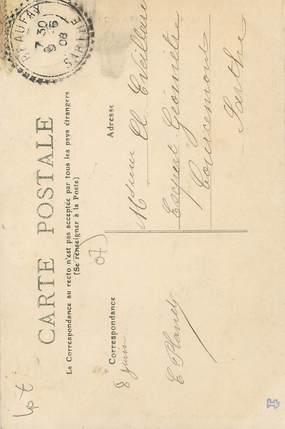 BEAUFAY
7 30
9 - 6
08
SARTHE
CARTE POSTALE
La Correspondance au recto n'est pas acceptée par tous les pays étrangers
(Se renseigner à la Poste)
Correspondance
Adresse
8 juin
Monsieur El
Expert Géomètre
Courcemont
Sarthe